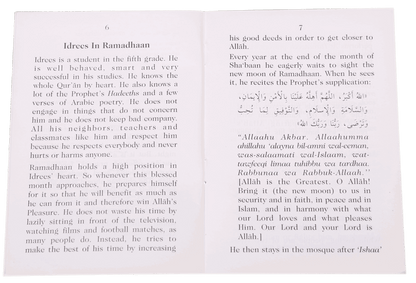 6
Idrees In Ramadhaan
Idrees is a student in the fifth grade. He
is well behaved, smart and very
successful in his studies. He knows the
whole Qur'ān by heart. He also knows a
lot of the Prophet's Hadeeths and a few
verses of Arabic poetry. He does not
engage in things that do not concern
him and he does not keep bad company.
All his neighbors, teachers and
classmates like him and respect him
because he respects everybody and never
hurts or harms anyone..
Ramadhaan holds a high position in
Idrees' heart. So whenever this blessed
month approaches, he prepares himself
for it so that he will benefit as much as
he can from it and therefore win Allāh's
Pleasure. He does not waste his time by
lazily sitting in front of the television,
watching films and football matches, as
many people do. Instead, he tries to
make the best of his time by increasing
7
his good deeds in order to get closer to
Allāh.
Every year at the end of the month of
Sha'baan he eagerly waits to sight the
new moon of Ramadhaan. When he sees
it, he recites the Prophet's supplication:
«اللهُ أَكْبَرُ، اللَّهُمَّ أَهِلَّهُ عَلَيْنَا بِالْأَمْنِ وَالْإِيمَانِ،
وَالسَّلَامَةِ وَالْإِسْلَامِ، وَالتَّوْفِيقِ لِمَا تُحِبُّ
وَتَرْضَى، رَبُّنَا وَرَبُّكَ اللهُ»
"Allaahu Akbar, Allaahumma
ahillahu 'alayna bil-amni wal-eeman,
was-salaamati wal-Islaam, wat-
tawfeeqi limaa tuhibbu wa tardhaa,
Rabbunaa wa Rabbuk-Allaah."
[Allāh is the Greatest. O Allāh!
Bring it (the new moon) to us in
security and in faith, in peace and in
Islam, and in harmony with what
our Lord loves and what pleases
Him. Our Lord and your Lord is
Allāh.]
He then stays in the mosque after 'Ishaa'